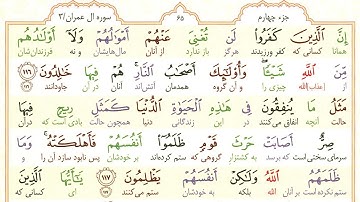 جزء چهارم ۶۵ سوره آل عمران/۳
إِنَّ الَّذِينَ كَفَرُوا لَنْ تُغْنِيَ عَنْهُمْ أَمْوَالُهُمْ وَلَا أَوْلَادُهُمْ
همانا کسانی که کفر ورزیدند هرگز باز ندارد از آنان مال‌هایشان و نه فرزندان‌شان
مِنَ اللَّهِ شَيْئًا وَأُولَئِكَ أَصْحَابُ النَّارِ هُمْ فِيهَا خَالِدُونَ ۱۱۶
از [عذاب] الله چیزی را و آن گروه همدمان آتش‌اند آنان در آن جاودانند
مَثَلُ مَا يُنْفِقُونَ فِي هَذِهِ الْحَيَوةِ الدُّنْيَا كَمَثَلِ رِيحٍ فِيهَا
حالت آنچه انفاق می‌کنند در این زندگانی دنیا همچون حالت بادی است که در آن
صِرٌّ أَصَابَتْ حَرْثَ قَوْمٍ ظَلَمُوا أَنْفُسَهُمْ فَأَهْلَكَتْهُ وَمَا
سرمای سختی است که برسد به کشتزار گروهی که ستم کرده‌اند بر خودشان پس نابود سازد آن را و
ظَلَمَهُمُ اللَّهُ وَلَكِنْ أَنْفُسَهُمْ يَظْلِمُونَ ۱۱۷ يَاأَيُّهَا الَّذِينَ
ستم نکرده است بر آنان الله بلکه به خودشان ستم می‌کنند ای کسانی که